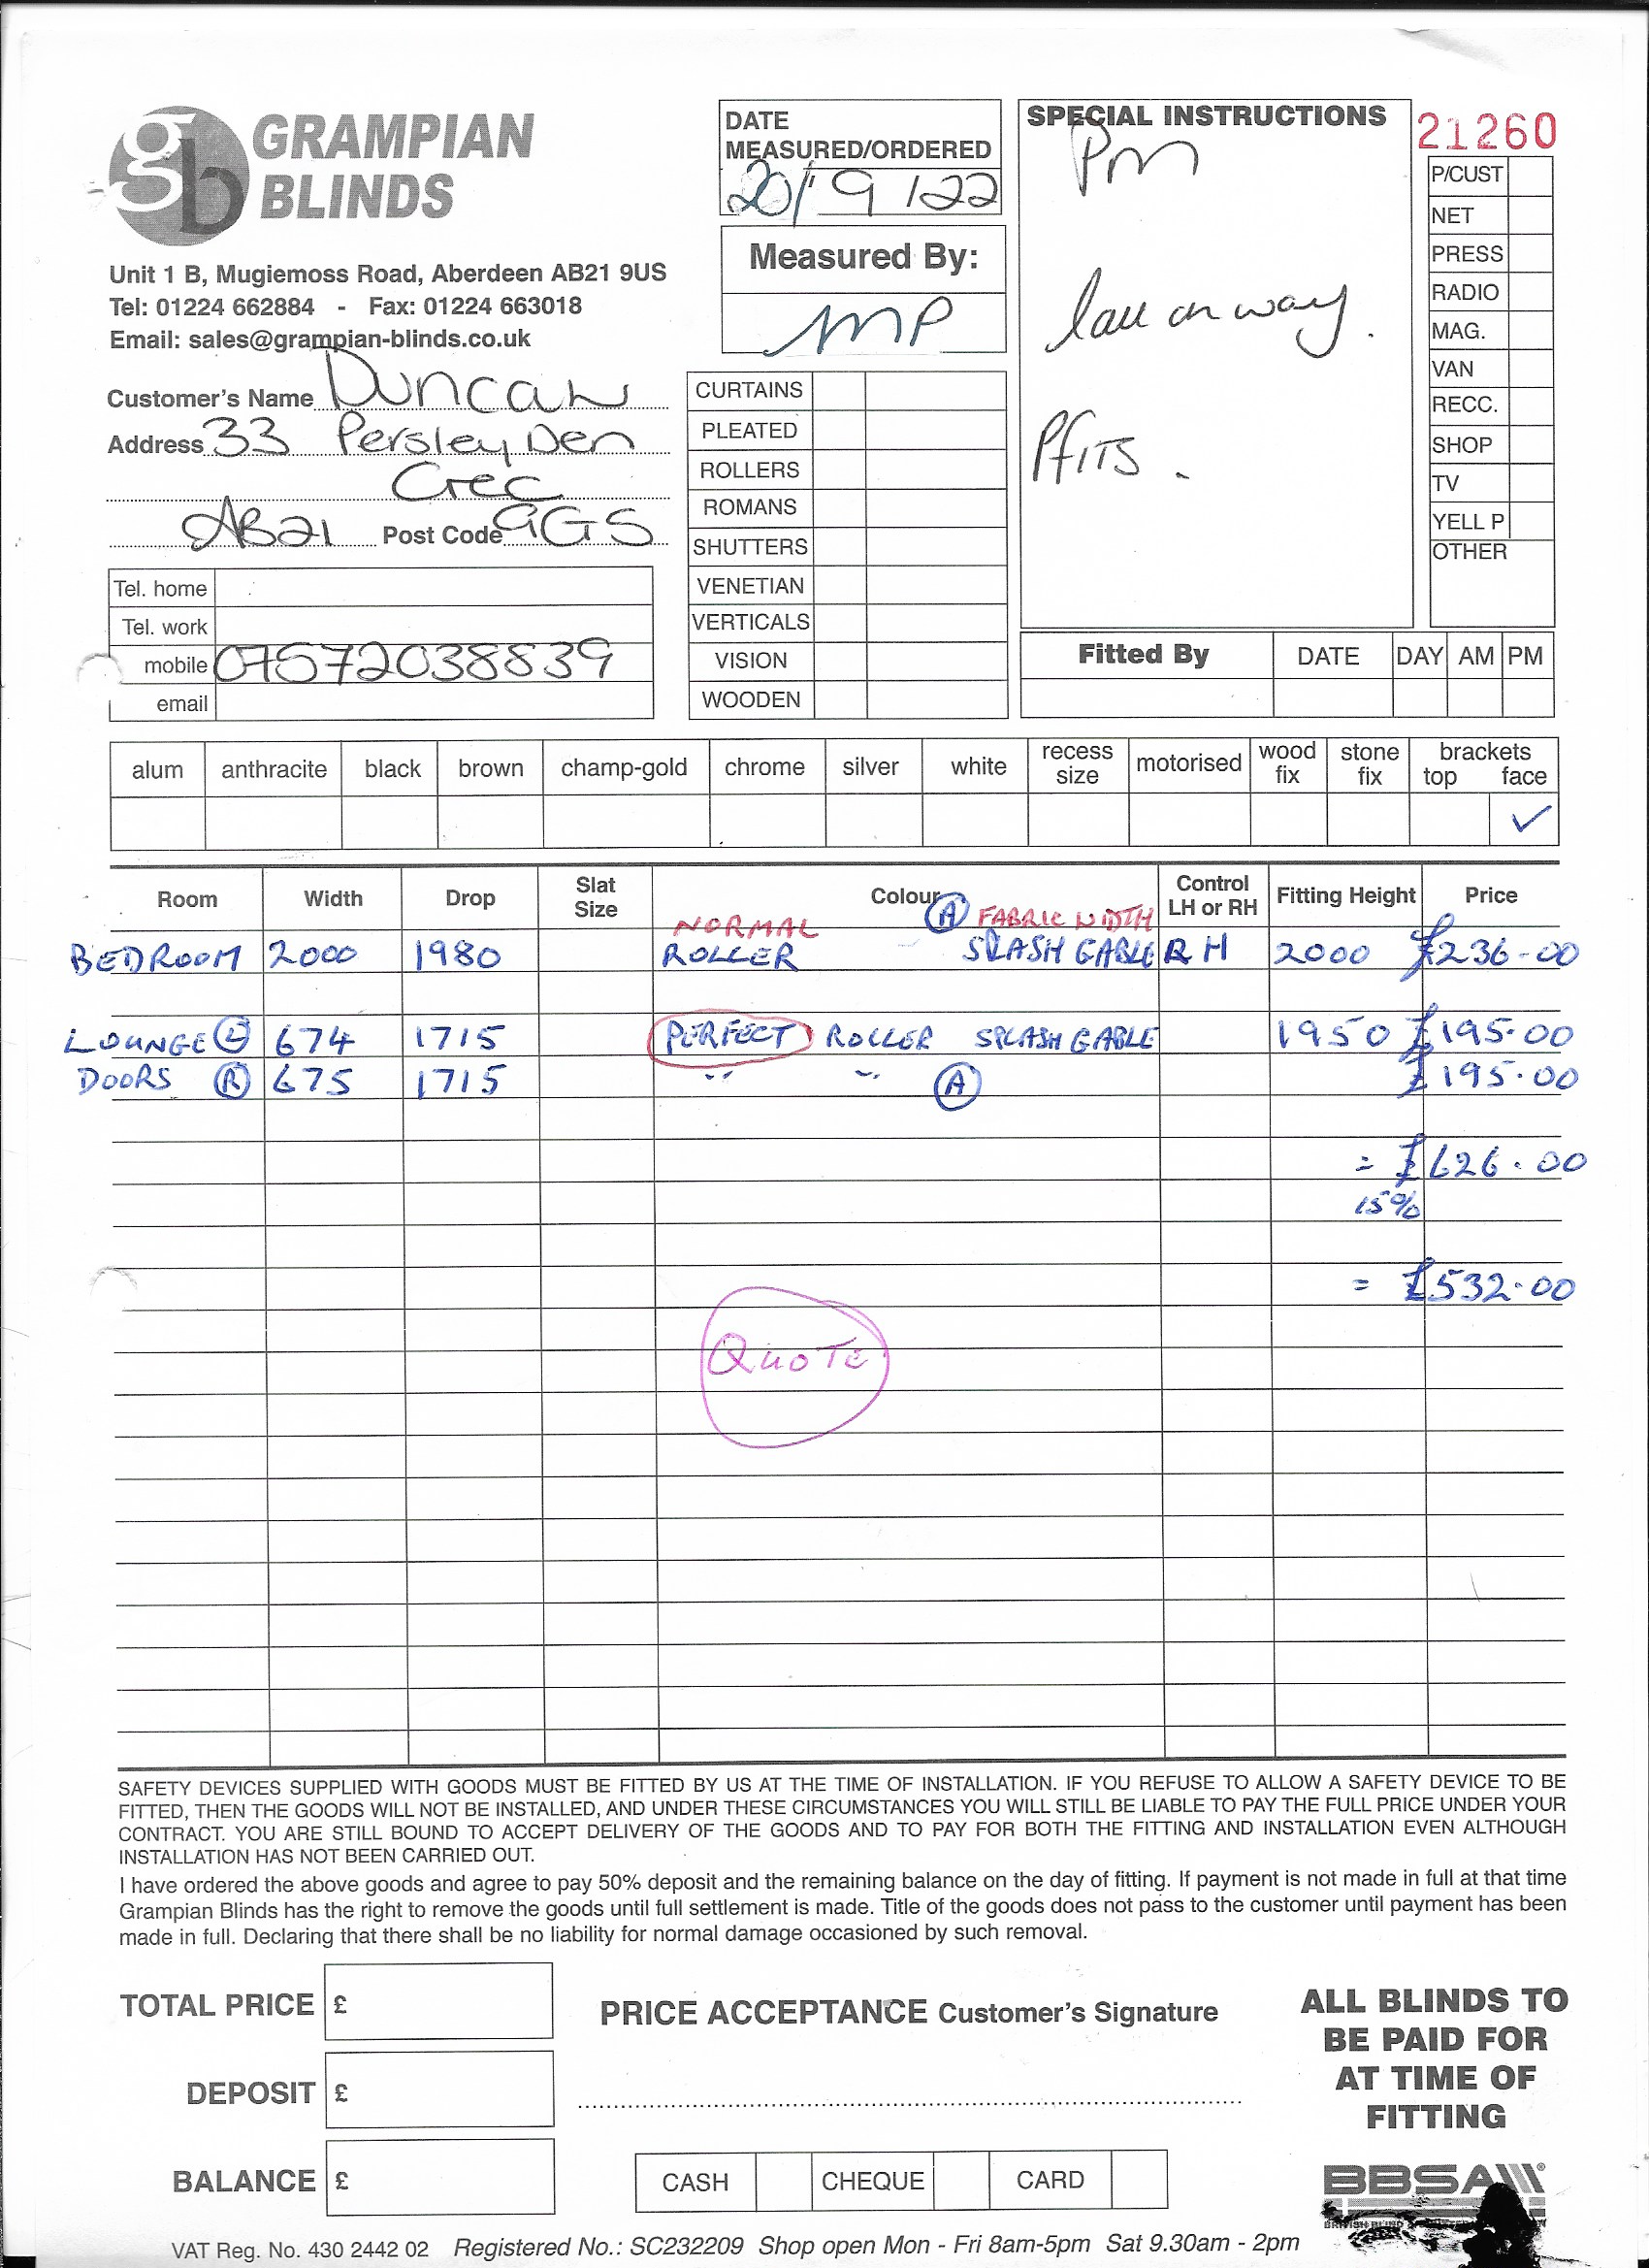 gb GRAMPIAN
BLINDS
Unit 1 B, Mugiemoss Road, Aberdeen AB21 9US
Tel: 01224 662884 - Fax: 01224 663018
Email: sales@grampian-blinds.co.uk
DATE
MEASURED/ORDERED
20/9/22
Measured By:
MP
SPECIAL INSTRUCTIONS
Pm
Call on way.
Pfits.
21260
P/CUST
NET
PRESS
RADIO
MAG.
VAN
RECC.
SHOP
TV
YELL P
OTHER
Customer's Name Duncan
Address 33 Persley Den
AB21 Post Code 9GS
Tel. home
Tel. work
mobile 07572038839
email
CURTAINS
PLEATED
ROLLERS
ROMANS
SHUTTERS
VENETIAN
VERTICALS
VISION
WOODEN
Fitted By DATE DAY AM PM
alum anthracite black brown champ-gold chrome silver white recess size motorised wood fix stone fix brackets top face
✓
Room Width Drop Slat Size Colour Control LH or RH Fitting Height Price
NORMAL A FABRIC WIDTH
BEDROOM 2000 1980 ROLLER SPLASH GABLE RH 2000 £236-00
LOUNGE L 674 1715 PERFECT ROLLER SPLASH GABLE 1950 £195.00
DOORS R 675 1715 " " A £195.00
= £626.00
15%
= £532.00
QUOTE
SAFETY DEVICES SUPPLIED WITH GOODS MUST BE FITTED BY US AT THE TIME OF INSTALLATION. IF YOU REFUSE TO ALLOW A SAFETY DEVICE TO BE
FITTED, THEN THE GOODS WILL NOT BE INSTALLED, AND UNDER THESE CIRCUMSTANCES YOU WILL STILL BE LIABLE TO PAY THE FULL PRICE UNDER YOUR
CONTRACT. YOU ARE STILL BOUND TO ACCEPT DELIVERY OF THE GOODS AND TO PAY FOR BOTH THE FITTING AND INSTALLATION EVEN ALTHOUGH
INSTALLATION HAS NOT BEEN CARRIED OUT.
I have ordered the above goods and agree to pay 50% deposit and the remaining balance on the day of fitting. If payment is not made in full at that time
Grampian Blinds has the right to remove the goods until full settlement is made. Title of the goods does not pass to the customer until payment has been
made in full. Declaring that there shall be no liability for normal damage occasioned by such removal.
TOTAL PRICE £
DEPOSIT £
BALANCE £
PRICE ACCEPTANCE Customer's Signature
CASH CHEQUE CARD
ALL BLINDS TO
BE PAID FOR
AT TIME OF
FITTING
BBSA®
VAT Reg. No. 430 2442 02 Registered No.: SC232209 Shop open Mon - Fri 8am-5pm Sat 9.30am - 2pm